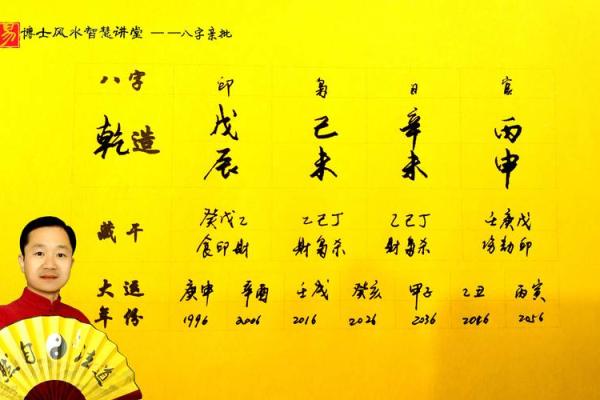 易 博士风水智慧讲堂 ——八字亲批
八字 印 枭 日 官
乾造 戊 己 辛 丙
辰 未 未 申
藏干 癸戊乙 乙己丁 乙己丁 壬庚戊
食印财 财枭杀 财枭杀 伤劫印
大运 庚申 辛酉 壬戌 癸亥 甲子 乙丑 丙寅
年份 1996 2006 2016 2026 2036 2046 2056
然自 法道